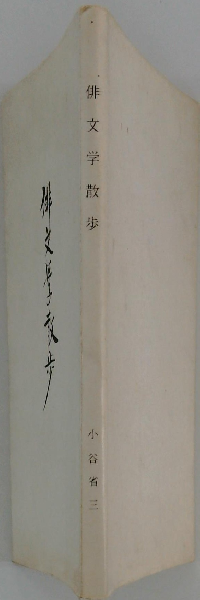 俳文学散歩
俳文学散歩
小谷省三